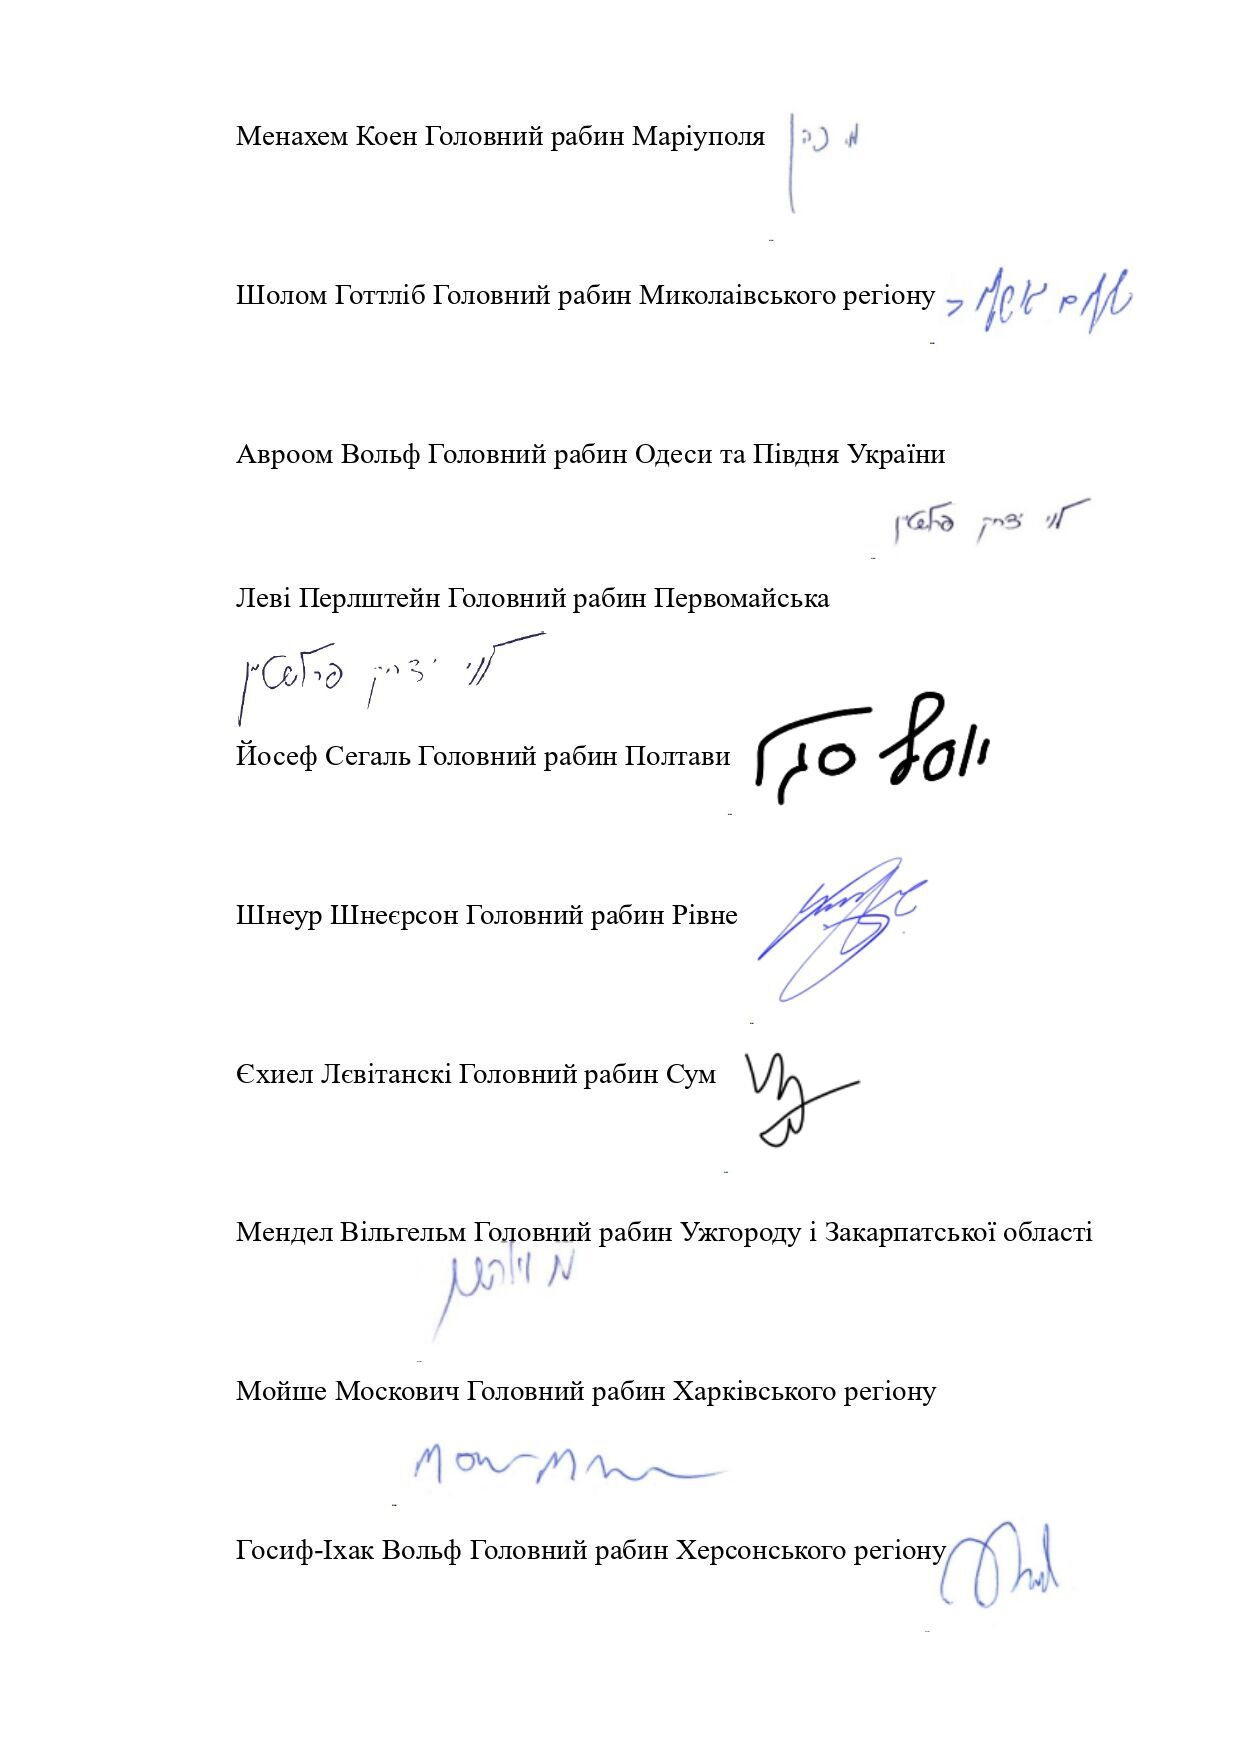 Менахем Коен Головний рабин Маріуполя מ. כהן
Шолом Готтліб Головний рабин Миколаівського регіону
Авроом Вольф Головний рабин Одеси та Півдня України
לוי יצחק פרלשטיין
Леві Перлштейн Головний рабин Первомайська
לוי יצחק פרלשטיין
Йосеф Сегаль Головний рабин Полтави יוסף סגל
Шнеур Шнеєрсон Головний рабин Рівне
Єхиел Лєвітанскі Головний рабин Сум
Мендел Вільгельм Головний рабин Ужгороду і Закарпатської області
Мойше Москович Головний рабин Харківського регіону
Госиф-Іхак Вольф Головний рабин Херсонського регіону